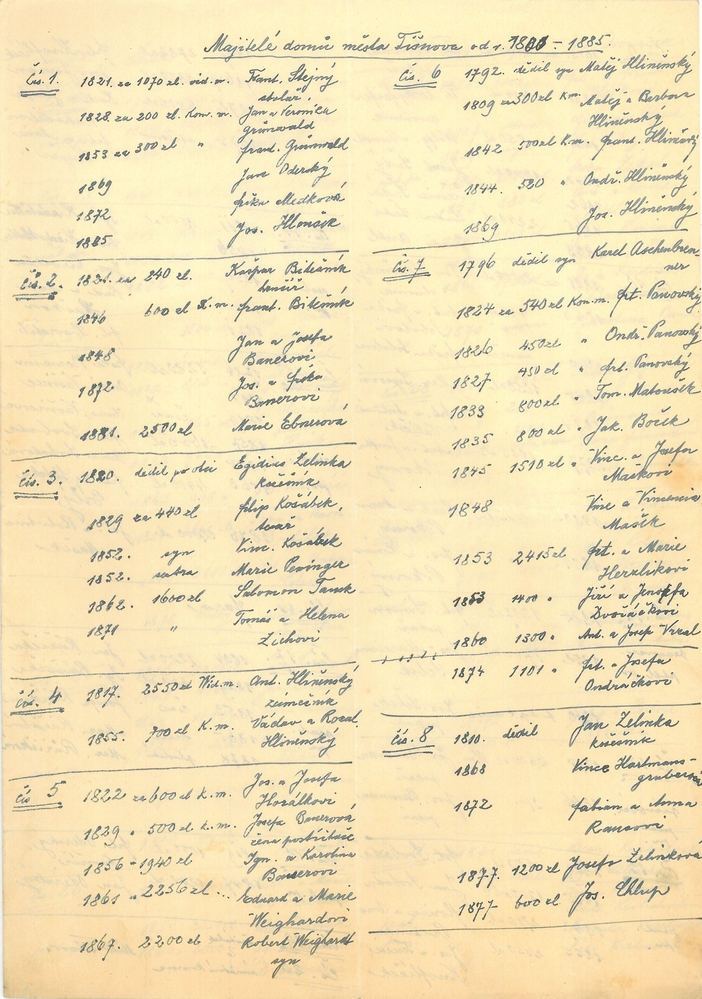 Majitelé domů města Tišnova od r. 1800 - 1885.
Čís. 1. 1821 za 1070 zl. vid. m. Frant. Stejný
stolař
1828 za 200 zl. Konv. m. Jan a Veronika
Grünwald
1853 za 300 zl " frant. Grünwald
1869 Jana Oderský
1872 Medková
1885 Jos. Hloušek
Čís. 2. 1821 za 240 zl. Kašpar Bitešník
1846 600 zl K. m. frant. Bitešník
1848 Jan a Josefa
Bauerovi
1872 Jos. a
Bauerovi
1881. 2500 zl Marie Ebnerová
Čís. 3. 1820. dědil po otci Egidius Zelinka
kožešník
1829 za 440 zl filip Košábek,
1852. syn Vinc. Košábek
1852. Marie
1862. 1600 zl Salomon
1871 " Tomáš a Helena
Zichovi
Čís. 4 1817. 2550 zl Wid. m. Ant. Hliněnský
1855. 700 zl K. m. Václav a Rozal.
Hliněnský
Čís 5 1822 za 600 zl k. m. Jos. a Josefa
1829 " 500 zl k. m. Josefa Bauerová
1856 - 1940 zl Ign. a Karolina
Bauerovi
1861 " 2256 zl ... Eduard a Marie
Weighardovi
1867. 2200 zl Robert Weighardt
syn
Čís. 6 1792. dědil syn Matěj Hliněnský
1809 za 300 zl Km. Matěj a Barbora
Hliněnský
1842 500 zl K.m. frant. Hliněnský
1844. 580 " Ondř. Hliněnský
1869 Jos. Hliněnský
Čís. 7. 1796 dědil syn Karel Aschenbren-
ner
1824 za 540 zl Kon. m. frt. Panovský
1826 450 zl " Ondř. Panovský
1827 450 zl " frt. Panovský
1833 800 zl " Tom. Matoušek
1835 800 zl " Jak. Boček
1845 1510 zl " Vinc. a Josefa
Maškovi
1848 Vinc a
Mašek
1853 2415 zl frt. a Marie
Herzlikovi
1853 1400 " Jiří a Josefa
Dvořáčkovi
1860 1300 " Ant. a Josef Vrzal
1874 1101 " frt. a Josefa
Ondráčkovi
čís. 8 1810. dědil Jan Zelinka
kožešník
1868 Vinc. Hartmans-
gruberová
1872 fabian a Anna
Rausovi
1877. 1200 zl Josefa Zelinková
1877 600 zl Jos. Chlup